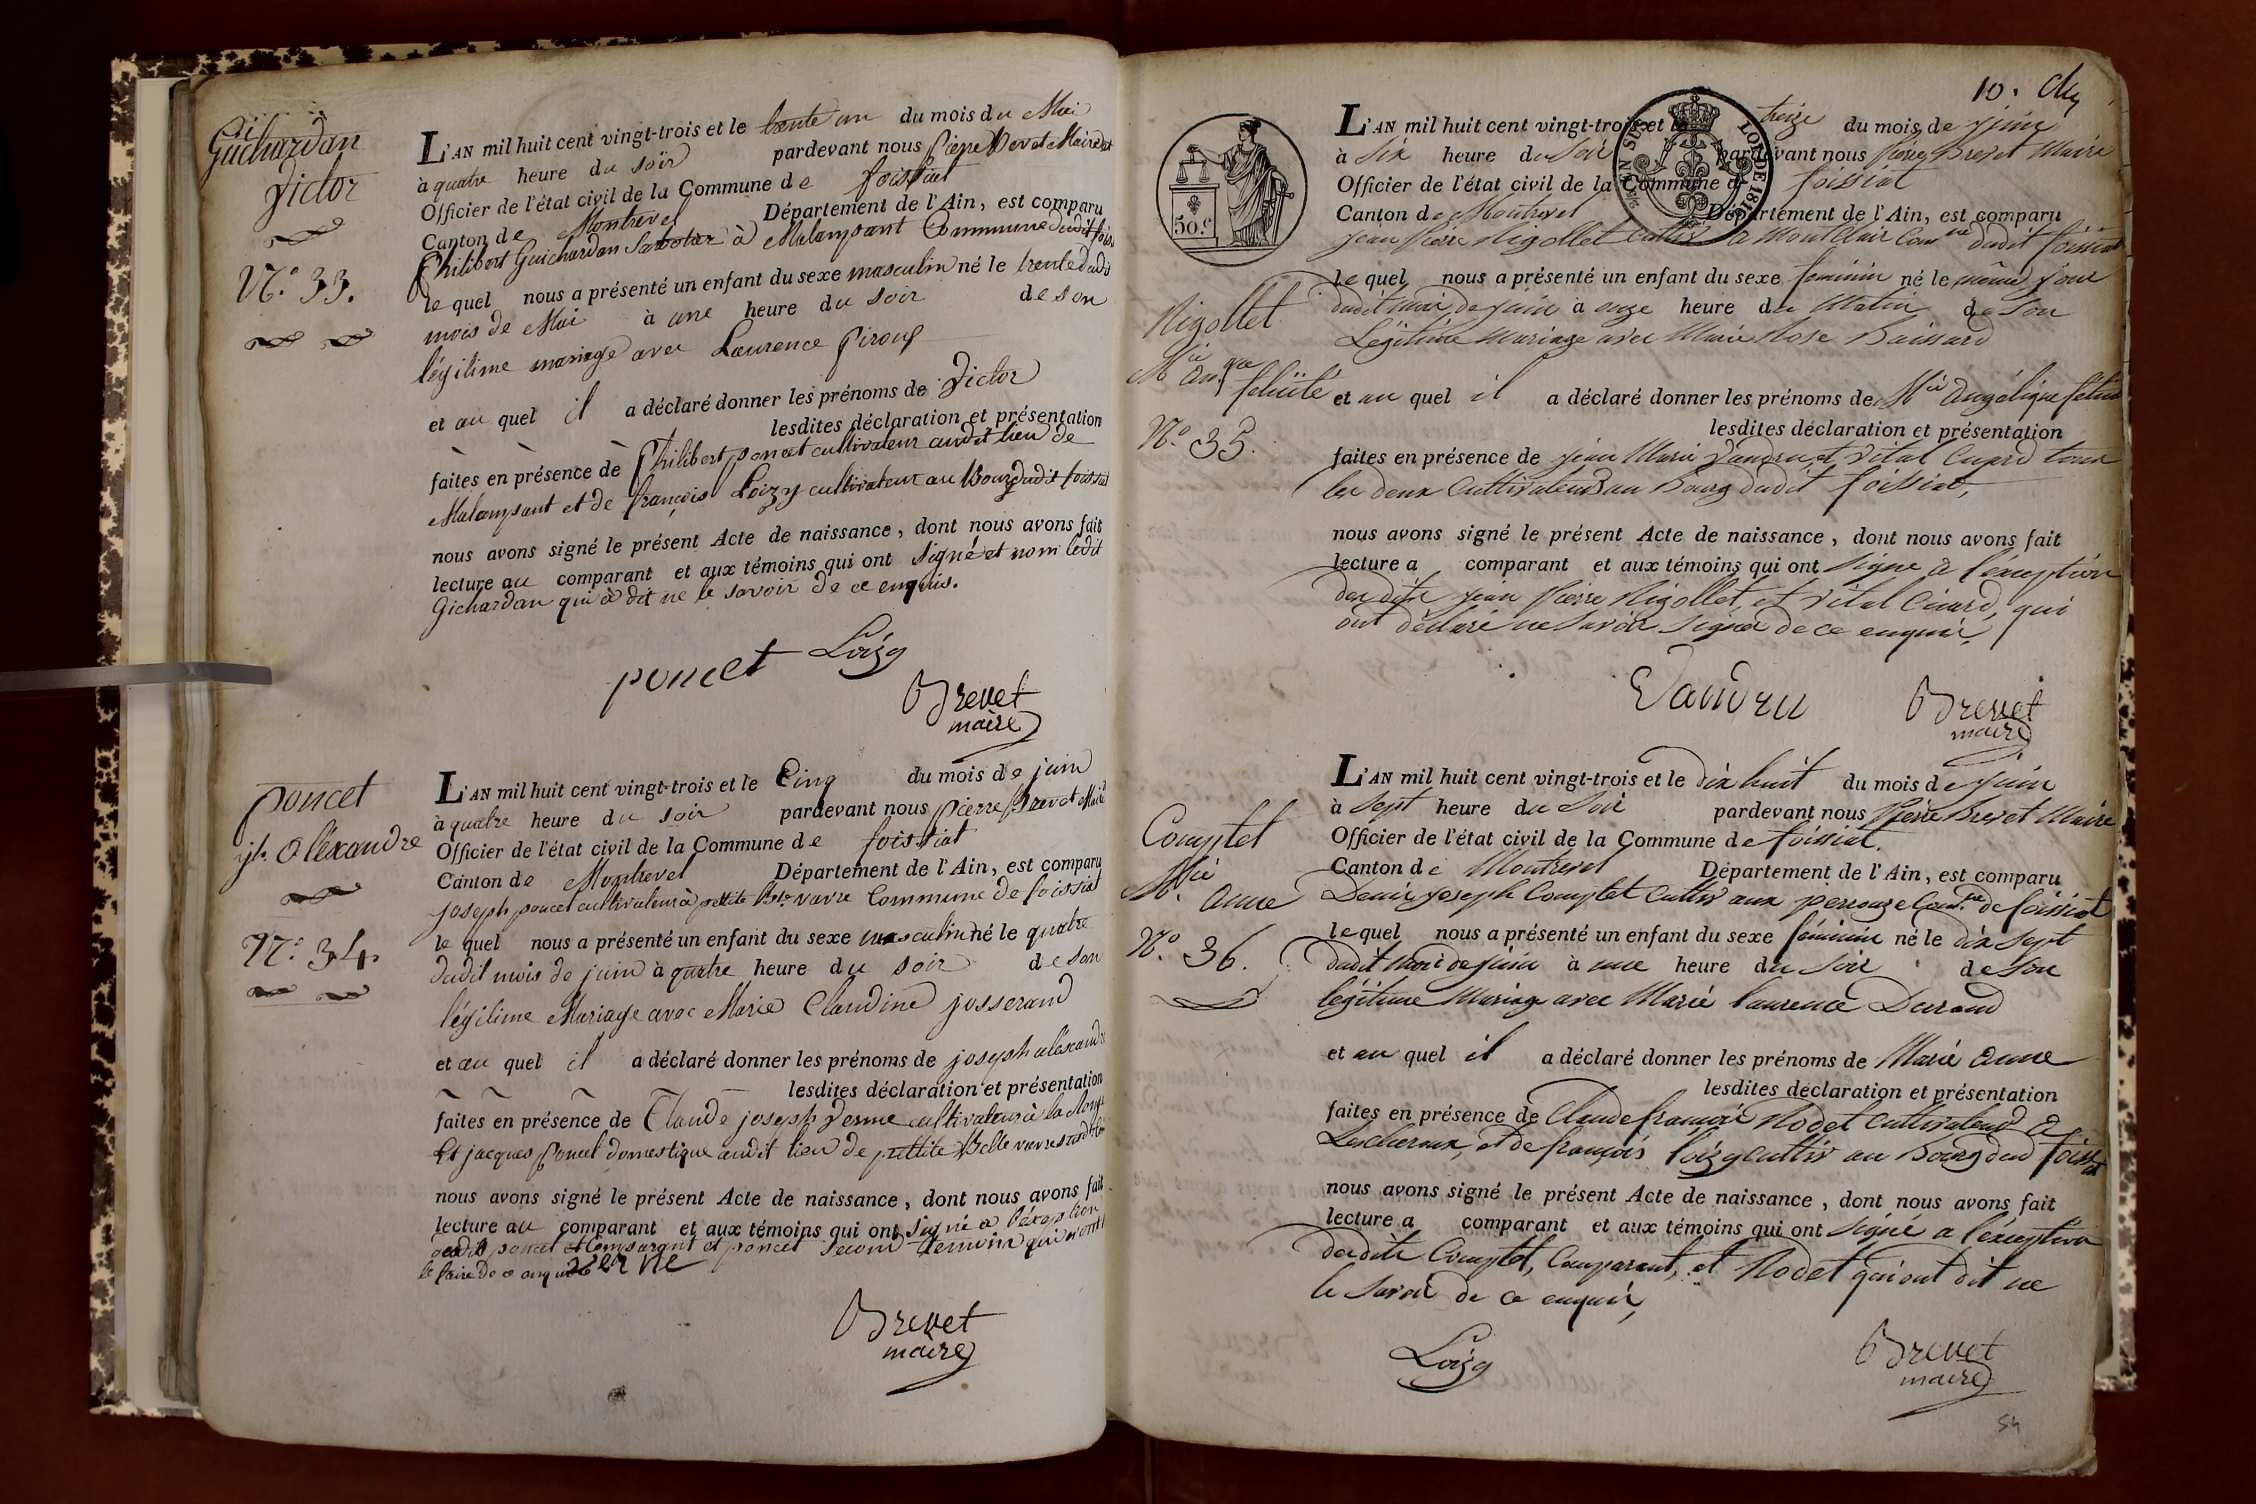 Guichardan
Victor
N.° 33.
L'AN mil huit cent vingt-trois et le trente un du mois du Mai
à quatre heure du soir pardevant nous Pierre Brevet Maire
Officier de l'état civil de la Commune de foissiat
Canton de Montrevel Département de l'Ain, est comparu
Philibert Guichardan à Malaysant Commune dudit
le quel nous a présenté un enfant du sexe masculin né le trente dudit
mois de Mai à une heure du soir de son
légitime mariage avec Laurence
et au quel il a déclaré donner les prénoms de Victor
lesdites déclaration et présentation
faites en présence de Philibert poncet cultivateur audit lieu de
et de françois Loizy cultivateur au Bourg dudit foissiat
nous avons signé le présent Acte de naissance, dont nous avons fait
lecture au comparant et aux témoins qui ont signé et nom ledit
Gichardan qui à dit ne le savoir de ce enquis.
poncet Loizy
Brevet
maire
poncet
jh. aléxandre
N.° 34.
L'AN mil huit cent vingt-trois et le Cinq du mois de juin
à quatre heure du soir pardevant nous pierre Brevet Maire
Officier de l'état civil de la Commune de foissiat
Canton de Montrevel Département de l'Ain, est comparu
joseph poncet cultivateur à pettite varvre Commune de foissiat
le quel nous a présenté un enfant du sexe masculin né le quatre
dudit mois de juin à quatre heure du soir de son
légitime Mariage avec Marie Claudine josserand
et au quel il a déclaré donner les prénoms de joseph aléxandre
lesdites déclaration et présentation
faites en présence de Claude joseph Verne cultivateur à la
Et jacques poncet domestique audit lieu de pettite
nous avons signé le présent Acte de naissance, dont nous avons fait
lecture au comparant et aux témoins qui ont signé a l'éxeption
dudit poncet Comparant et poncet second temoin qui n'ont
le faire de ce enquis verne
Brevet
maire
10.
50.c
TIMBRE LOI DE 1816
L'AN mil huit cent vingt-trois et le treize du mois de juin
à Six heure du Soir pardevant nous Pierre Brevet Maire
Officier de l'état civil de la Commune de foissiat
Canton de Montrevel Département de l'Ain, est comparu
jean Pierre Rigollet Cultiv. a Montclair Comne dudit foissiat
Rigollet
Mie angque
felicité
N.° 35.
le quel nous a présenté un enfant du sexe féminin né le même jour
dudit mois de juin à onze heure du Matin de Son
Légitime mariage avec Marie Rose Baissard
et au quel il a déclaré donner les prénoms de Mie Angélique félicité
lesdites déclaration et présentation
faites en présence de jean Marie Vandru et Vital Cuard tous
les deux Cultivateurs au Bourg dudit foissiat,
nous avons signé le présent Acte de naissance, dont nous avons fait
lecture a comparant et aux témoins qui ont Signé a l'éxception
des dits jean Pierre Rigollet, et Vital Cuard, qui
ont déclaré ne Savoir Signer de ce enquis,
Vandru
Brevet
maire
Comptet
Mie anne
N.° 36.
L'AN mil huit cent vingt-trois et le dix huit du mois de juin
à Sept heure du Soir pardevant nous Pierre Brevet Maire
Officier de l'état civil de la Commune de foissiat.
Canton de Montrevel Département de l'Ain, est comparu
Denis joseph Comptet Cultiv. aux perrouze Comne de foissiat
le quel nous a présenté un enfant du sexe féminin né le dix Sept
dudit Mois de juin à une heure du Soir de Son
légitime Mariage avec Marie laurence Durand
et au quel il a déclaré donner les prénoms de Marie anne
lesdites déclaration et présentation
faites en présence de Claude françois Rodet Cultivateur à
Lescheroux, et de françois loizy cultiv. au Bourg dud. foissiat
nous avons signé le présent Acte de naissance, dont nous avons fait
lecture a comparant et aux témoins qui ont Signé a l'éxception
desdits Comptet, Comparant, et Rodet qui ont dit ne
le Savoir de ce enquis,
Loizy
Brevet
maire
54